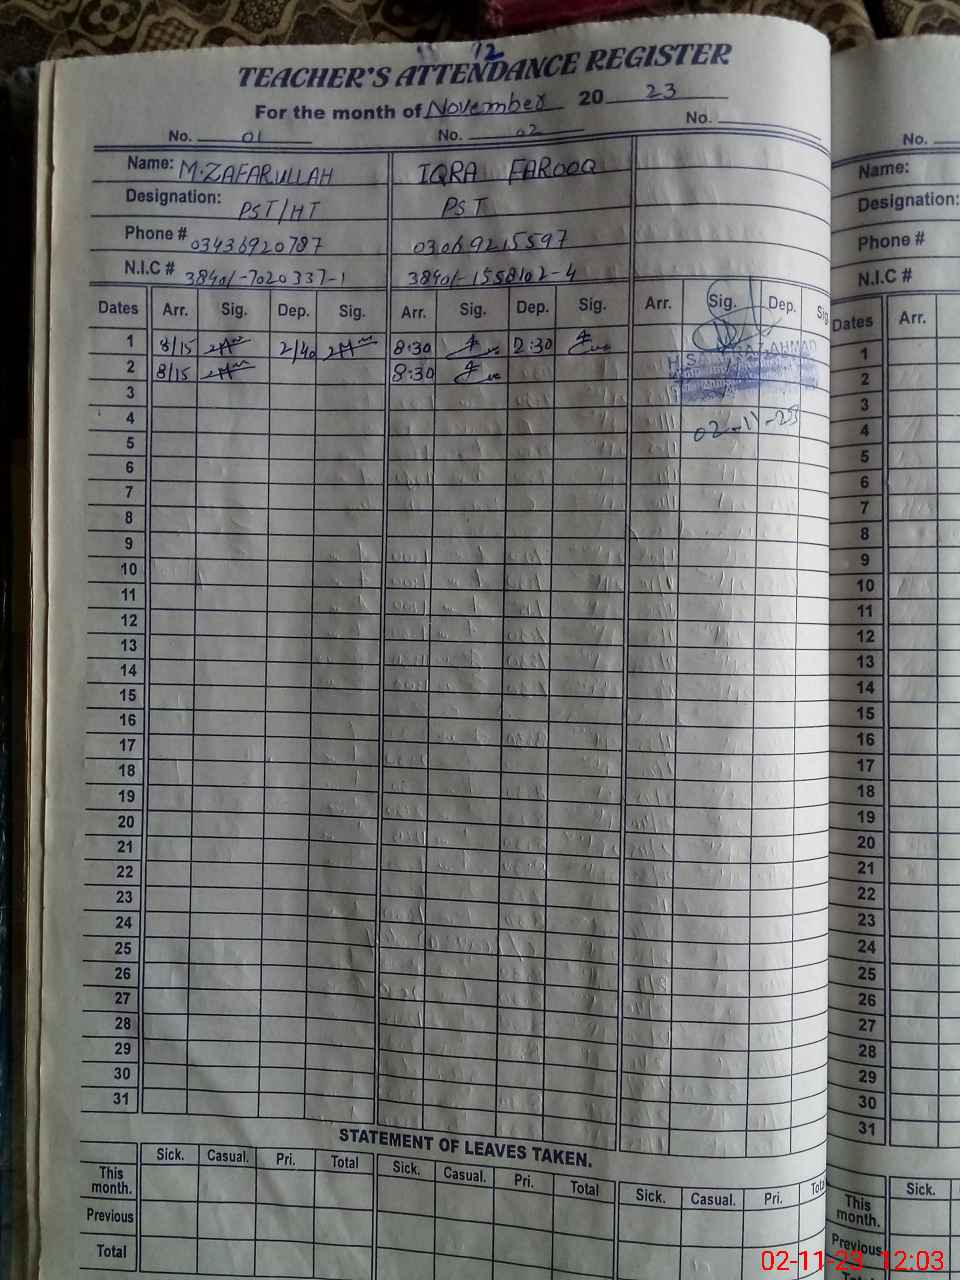 11 12
TEACHER'S ATTENDANCE REGISTER
For the month of November 20 23
No. 01 No. 02 No.
Name: M.ZAFARULLAH IQRA FAROOQ
Designation: PST/HT PST
Phone # 03436920787 03069215597
N.I.C # 38401-7020337-1 38401-1558102-4
Dates Arr. Sig. Dep. Sig. Arr. Sig. Dep. Sig. Arr. Sig. Dep. Sig
1 8/15 2/40 8:30 2:30
2 8/15 8:30
3
4 02-11-23
5
6
7
8
9
10
11
12
13
14
15
16
17
18
19
20
21
22
23
24
25
26
27
28
29
30
31
STATEMENT OF LEAVES TAKEN.
Sick. Casual. Pri. Total Sick. Casual. Pri. Total Sick. Casual. Pri. Total
This month.
Previous
Total
No.
Name:
Designation:
Phone #
N.I.C #
Dates Arr.
1
2
3
4
5
6
7
8
9
10
11
12
13
14
15
16
17
18
19
20
21
22
23
24
25
26
27
28
29
30
31
Sick.
This month.
Previous
02-11-23 12:03